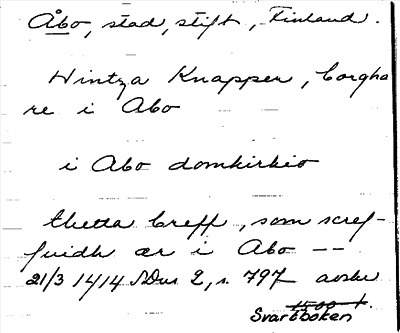 Åbo, stad, stift, Finland.
Wintza Knapper, borgha
re i Abo
i Abo domkirkio
thetta breff, som scref-
fuidh ær i Abo --
21/3 1414 SDns 2, s. 797 avskr
Svartboken